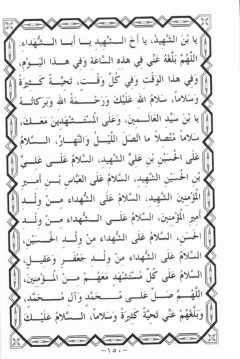 يا بْنَ الشَّهيدُ، يا أخَ الشَّهيدِ يـا أبـا الشُّهداءِ.
اللّهُمَّ بَلِّغْهُ عَنّي في هذِهِ السَّاعَةِ وَفي هذَا الْيَـوْمِ،
وَفي هذَا الْوَقْتِ وَفي كُلِّ وَقْـتٍ، تَحيَّـةً كَثيـرَةً
وَسَلاماً، سَلامُ اللهِ عَلَيْكَ وَرَحْـمَـةُ اللهِ وَبَرَكاتُـهُ
يا بْنَ سَيِّدِ الْعالَمـينَ، وَعَلَى الْمُسْتَشْهَدينَ مَعَـكَ،
سَلاماً مُتَّصِلاً مَا اتَّصَلَ اللَّيْـلُ وَالنَّهـارُ، السَّـلامُ
عَلَى الْحُسَيْنِ بْنِ عَلِيٍّ الشَّهيدِ، السَّلامُ عَلَـى عَلـيِّ
بْنِ الْحُسَيْنِ الشَّهيدِ، السَّلامُ عَلَى الْعَبَّاسِ بْـنِ اَميـرِ
الْمُؤْمِنينَ الشَّهيدِ، السَّلامُ عَلَى الشُّهَداءِ مِنْ وُلْـدِ
أَميرِ الْمُؤْمِنينَ، السَّلامُ عَلَـى الشُّهداءِ مِـنْ وُلْـدِ
الْحَسَنِ، السَّلامُ عَلَى الشُّهداءِ مِنْ وُلْدِ الْحُسَيْنِ،
السَّلامُ عَلَى الشُّهداءِ مِنْ وُلْدِ جَعْفَرٍ وَعَقيـلٍ،
السَّلامُ عَلَى كُلِّ مُسْتَشْهَدٍ مَعَهُمْ مِـنَ الْمُؤْمِنيـنَ،
اللّهُمَّ صَلِّ عَلـى مُـحَمَّدٍ وَآلِ مُـحَمَّدٍ،
وَبَلِّغْهُمْ عَنّي تَحيَّةً كَثيرَةً وَسَلاماً، السَّـلامُ عَلَيْـكَ
-١٥٠-